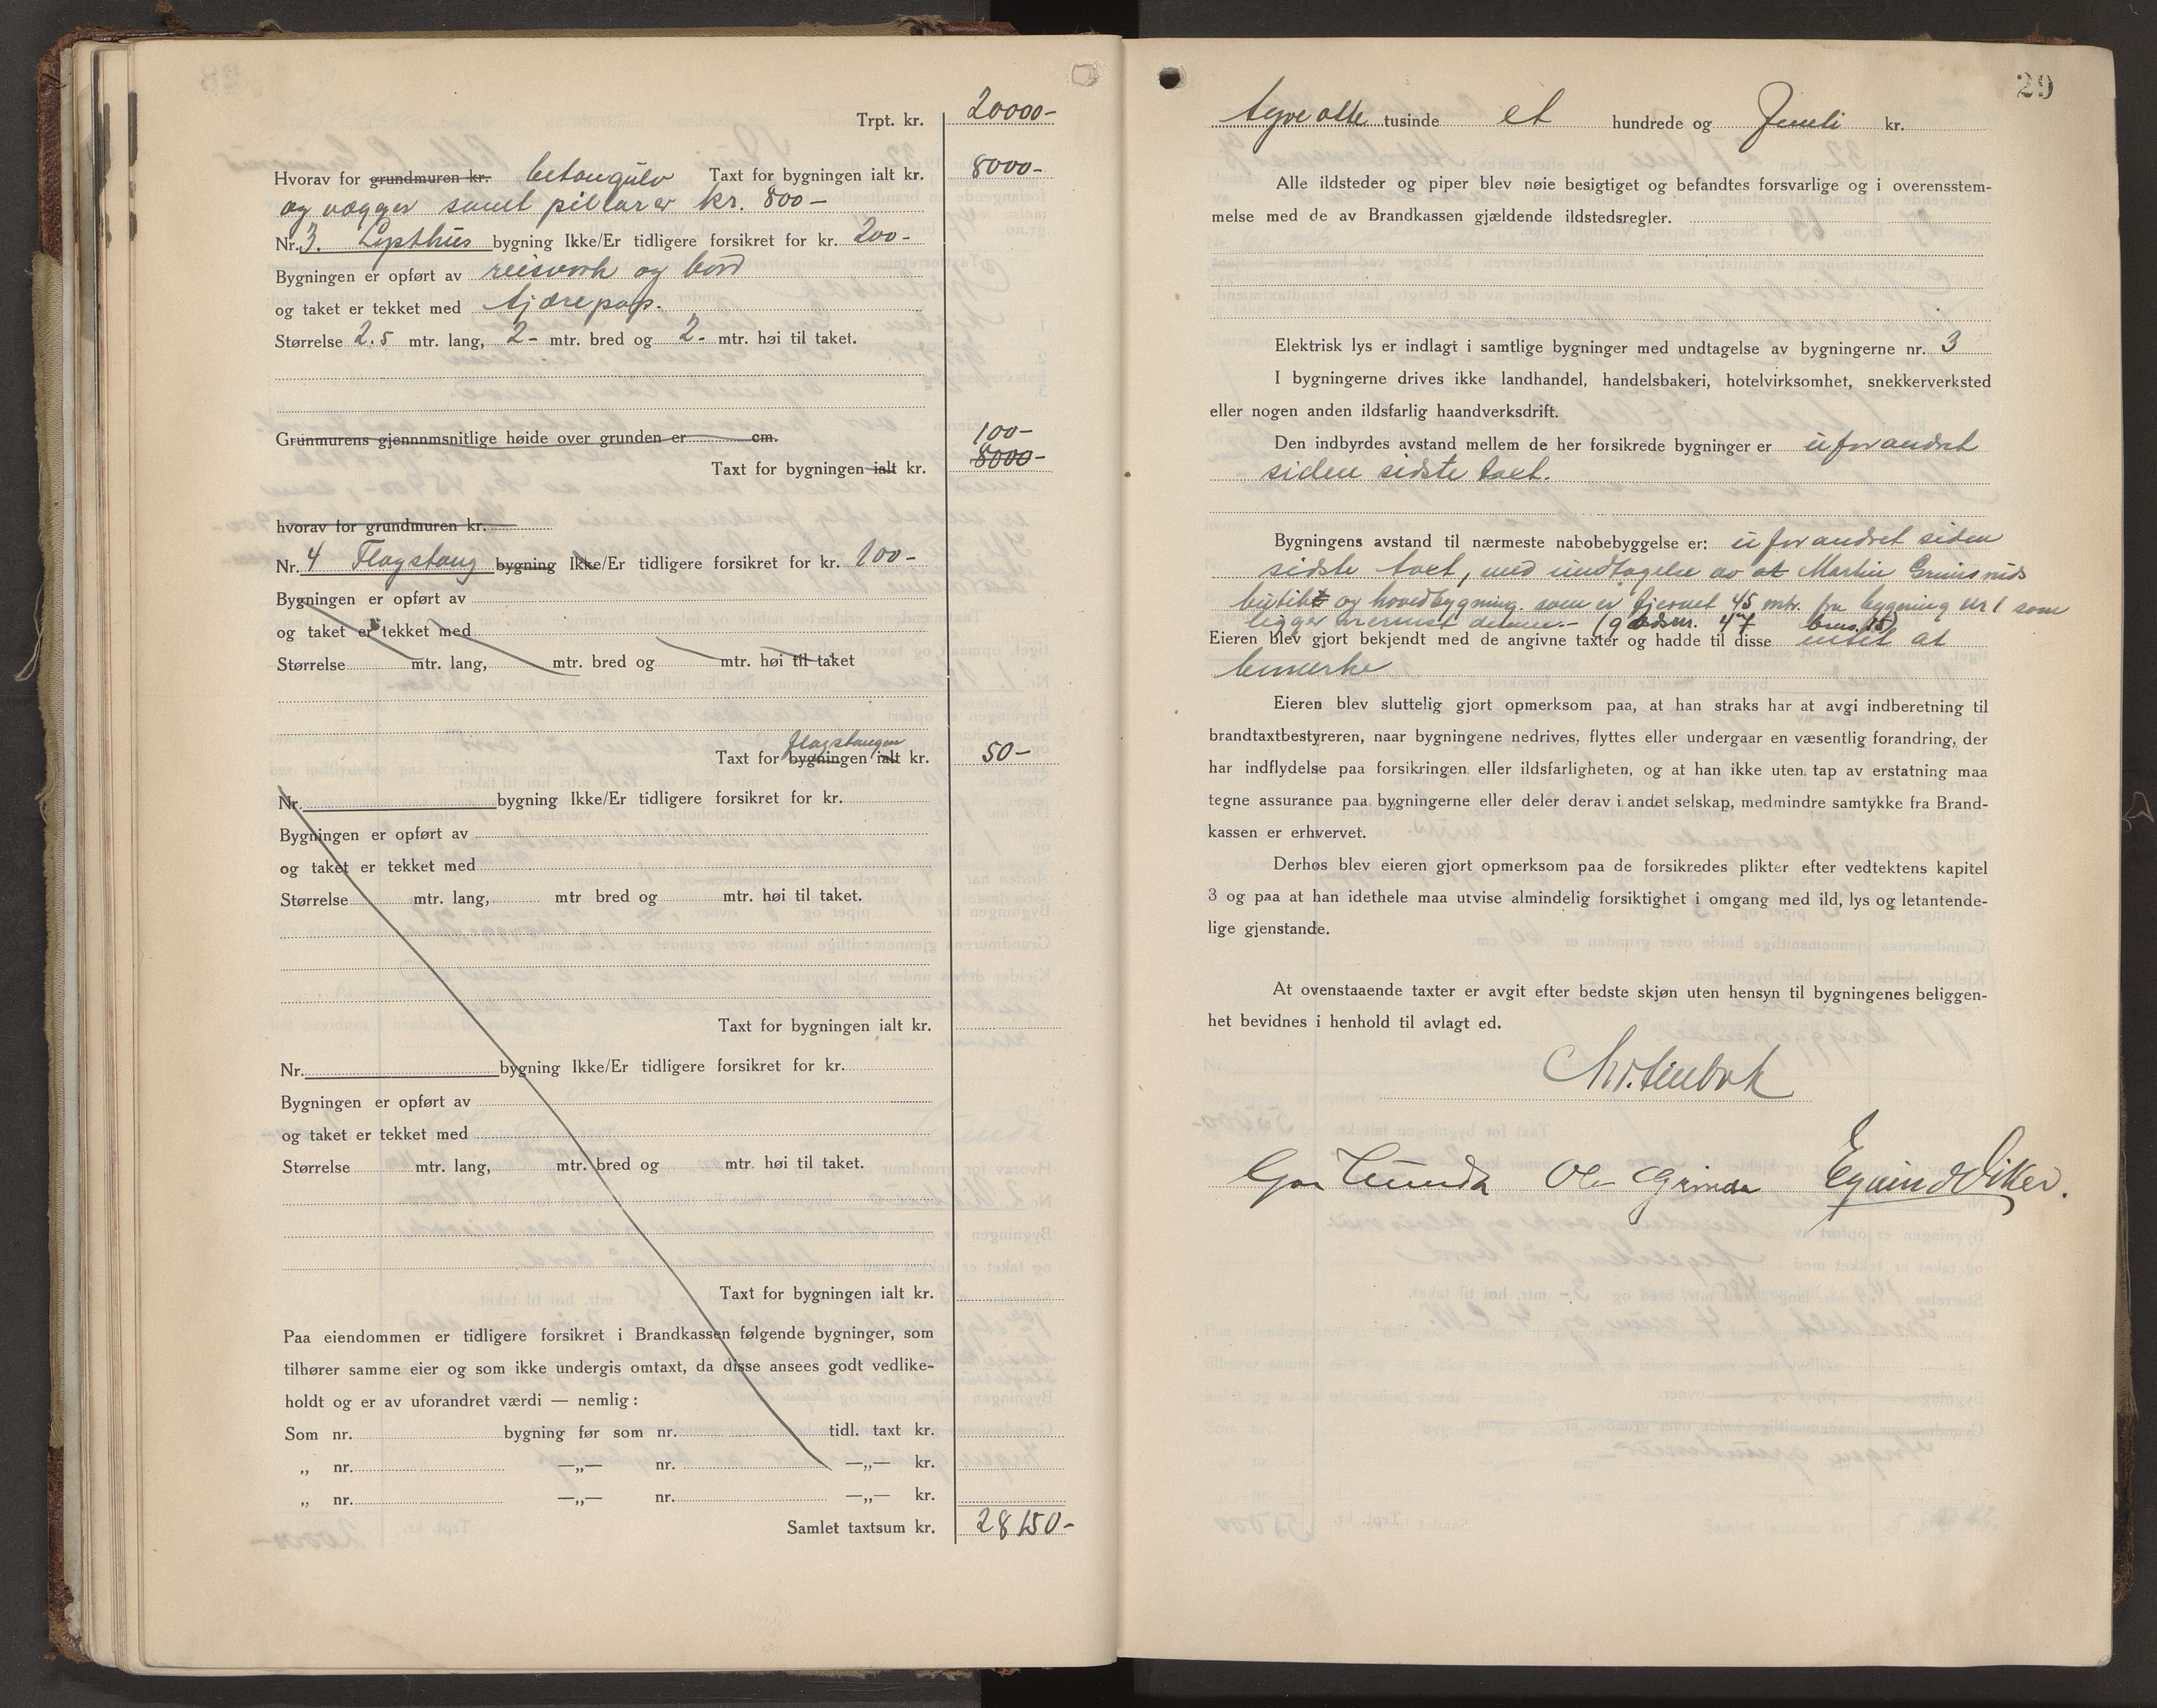 Trpt. kr. 20000-
Hvorav for grundmuren kr. betongulv Taxt for bygningen ialt kr. 8000-
og vægger samt pillarer kr. 800-
Nr. 3. Lysthus bygning Ikke/Er tidligere forsikret for kr. 200-
Bygningen er opført av reisverk og bord
og taket er tekket med tjærepap.
Størrelse 2.5 mtr. lang, 2- mtr. bred og 2- mtr. høi til taket.
Grunmurens gjennnmsnitlige høide over grunden er cm.
100-
Taxt for bygningen ialt kr. 8000-
hvorav for grundmuren kr.
Nr. 4 Flagstang bygning Ikke/Er tidligere forsikret for kr. 100-
Bygningen er opført av
og taket er tekket med
Størrelse mtr. lang, mtr. bred og mtr. høi til taket
flagstangen
Taxt for bygningen ialt kr. 50-
Nr. bygning Ikke/Er tidligere forsikret for kr.
Bygningen er opført av
og taket er tekket med
Størrelse mtr. lang, mtr bred og mtr. høi til taket.
Taxt for bygningen ialt kr.
Nr. bygning Ikke/Er tidligere forsikret for kr.
Bygningen er opført av
og taket er tekket med
Størrelse mtr. lang, mtr. bred og mtr. høi til taket.
Taxt for bygningen ialt kr.
Paa eiendommen er tidligere forsikret i Brandkassen følgende bygninger, som
tilhører samme eier og som ikke undergis omtaxt, da disse ansees godt vedlike-
holdt og er av uforandret værdi — nemlig:
Som nr. bygning før som nr. tidl. taxt kr.
„ nr. —„— nr. —„— kr.
„ nr. —„— nr. —„— kr.
Samlet taxtsum kr. 28150-
29
tyveotte tusinde et hundrede og femti kr.
Alle ildsteder og piper blev nøie besigtiget og befandtes forsvarlige og i overensstem-
melse med de av Brandkassen gjældende ildstedsregler.
Elektrisk lys er indlagt i samtlige bygninger med undtagelse av bygningerne nr. 3
I bygningerne drives ikke landhandel, handelsbakeri, hotelvirksomhet, snekkerverksted
eller nogen anden ildsfarlig haandverksdrift.
Den indbyrdes avstand mellem de her forsikrede bygninger er uforandret
siden sidste taxt.
Bygningens avstand til nærmeste nabobebyggelse er: uforandret siden
sidste taxt, med undtagelse av at Martin
butikk og hovedbygning. som er fjernet 45 mtr. fra bygning nr 1 som
ligger nærmest denne.- (gårdsnr. 47 brno. 15)
Eieren blev gjort bekjendt med de angivne taxter og hadde til disse intet at
bemerke
Eieren blev sluttelig gjort opmerksom paa, at han straks har at avgi indberetning til
brandtaxtbestyreren, naar bygningene nedrives, flyttes eller undergaar en væsentlig forandring, der
har indflydelse paa forsikringen eller ildsfarligheten, og at han ikke uten tap av erstatning maa
tegne assurance paa bygningerne eller deler derav i andet selskap, medmindre samtykke fra Brand-
kassen er erhvervet.
Derhos blev eieren gjort opmerksom paa de forsikredes plikter efter vedtektens kapitel
3 og paa at han idethele maa utvise almindelig forsiktighet i omgang med ild, lys og letantende-
lige gjenstande.
At ovenstaaende taxter er avgit efter bedste skjøn uten hensyn til bygningenes beliggen-
het bevidnes i henhold til avlagt ed.
Ole Eyvind Viker.